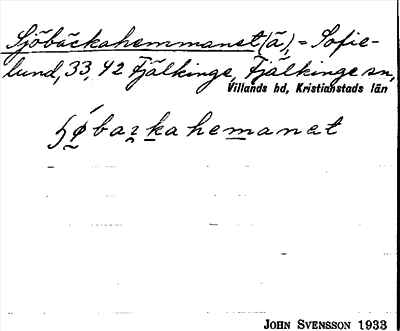 Sjöbäckahemmanet (ä) = Sofie-
lund, 33, 42 Fjälkinge, Fjälkinge sn,
Villands hd, Kristianstads län
JOHN SVENSSON 1933